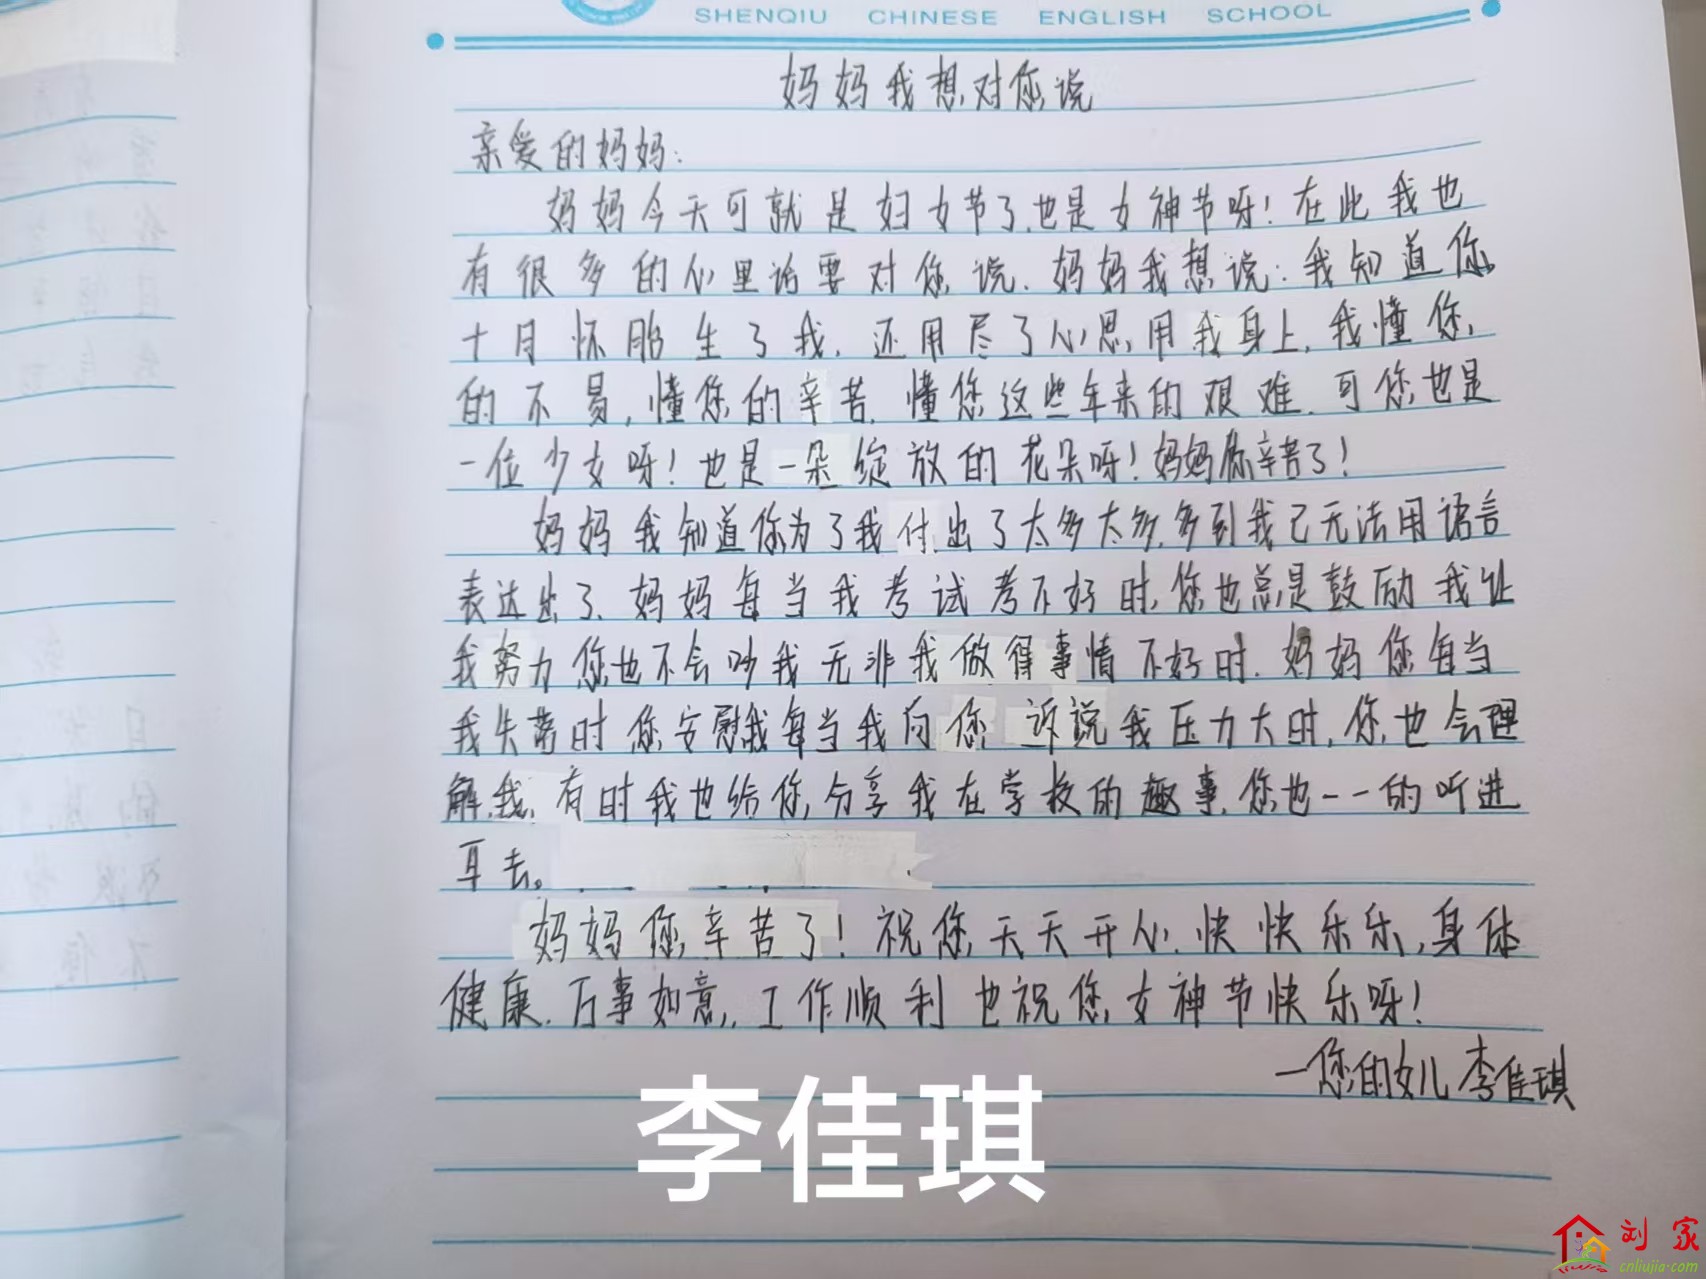 SHENQIU CHINESE ENGLISH SCHOOL
妈妈我想对您说
亲爱的妈妈:
妈妈今天可就是妇女节了,也是女神节呀!在此我也
有很多的心里话要对您说.妈妈我想说:我知道您
十月怀胎生了我,还用尽了心思,用我身上,我懂您,
的不易,懂您的辛苦,懂您这些年来的艰难.可您也是
一位少女呀!也是一朵绽放的花朵呀!妈妈你辛苦了!
妈妈我知道你为了我付出了太多太多,多到我已无法用语言
表达出了、妈妈每当我考试考不好时,您也总是鼓励我让
我努力您也不会吵我无非我做得事情不好时.妈妈您每当
我失落时您安慰我每当我向您诉说我压力大时,您也会理
解我,有时我也给你分享我在学校的趣事,您也一一的听进
耳去。
妈妈您辛苦了!祝您天天开心.快快乐乐,身体
健康.万事如意,工作顺利也祝您女神节快乐呀!
一您的女儿李佳琪
李佳琪
刘家
cnliujia.com